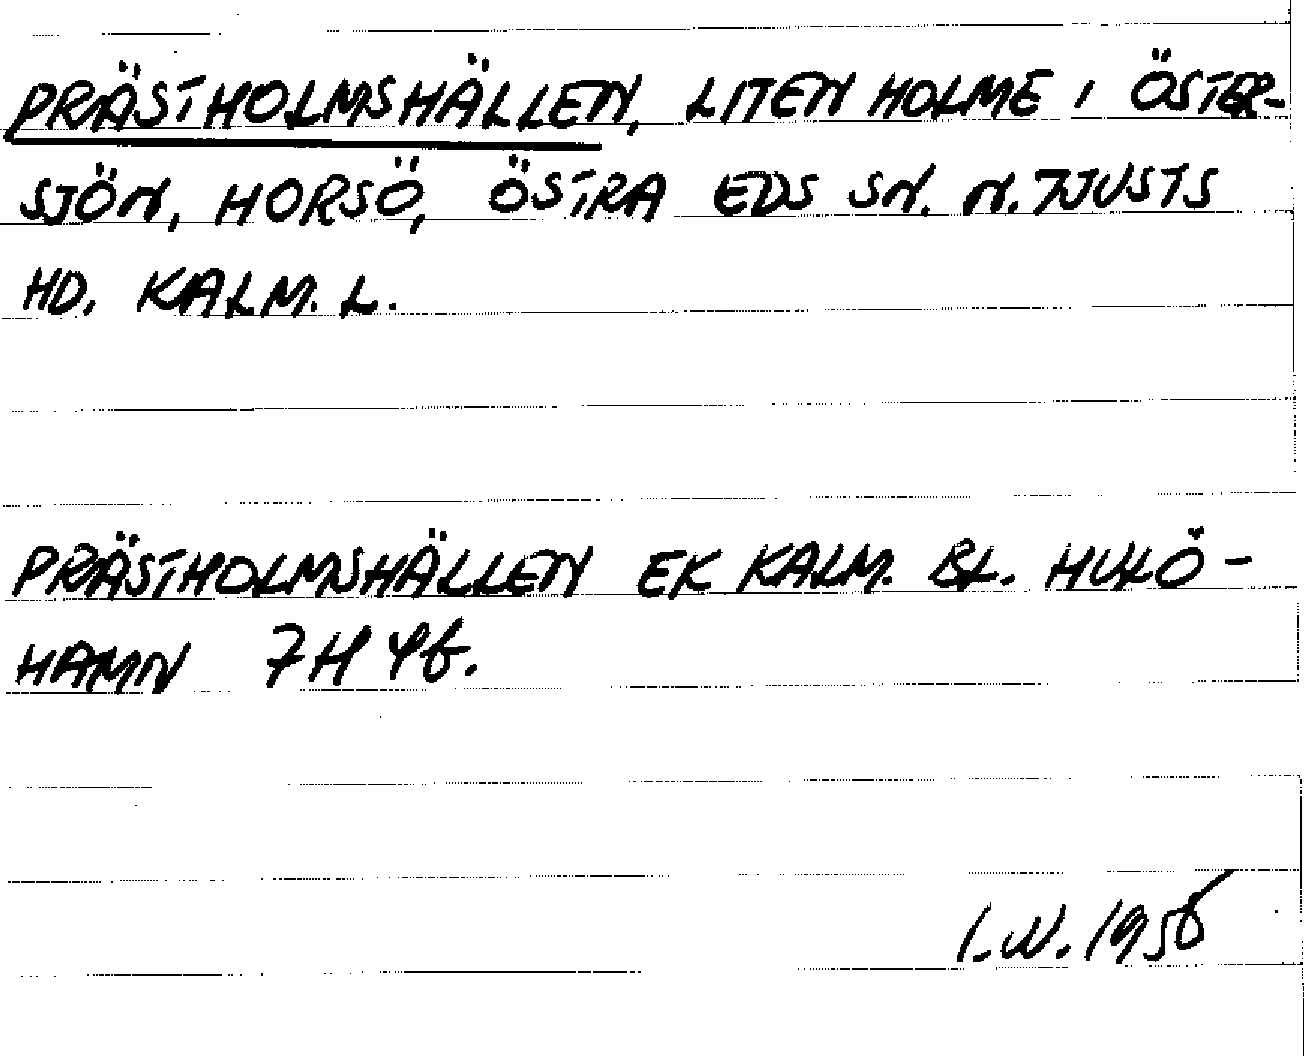 PRÄSTHOLMSHÄLLEN, LITEN HOLME I ÖSTER-
SJÖN, HORSÖ, ÖSTRA EDS SN. N. TJUSTS
HD. KALM. L.
PRÄSTHOLMSHÄLLEN EK KALM. BL. HULÖ-
HAMN 7H 4b.
I.N. 1956